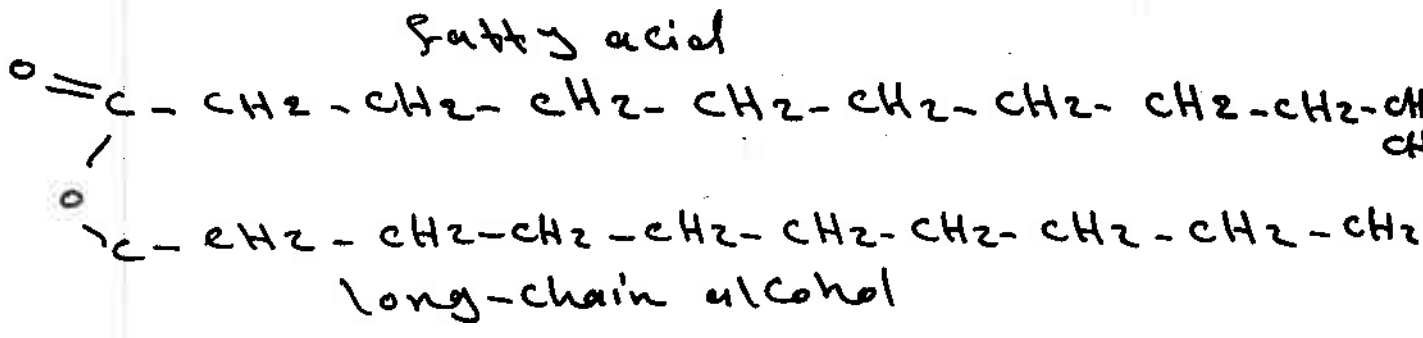 fatty acid
O=C-CH2-CH2-CH2-CH2-CH2-CH2-CH2-CH2-CH
CH
O
C-CH2-CH2-CH2-CH2-CH2-CH2-CH2-CH2-CH2
long-chain alcohol